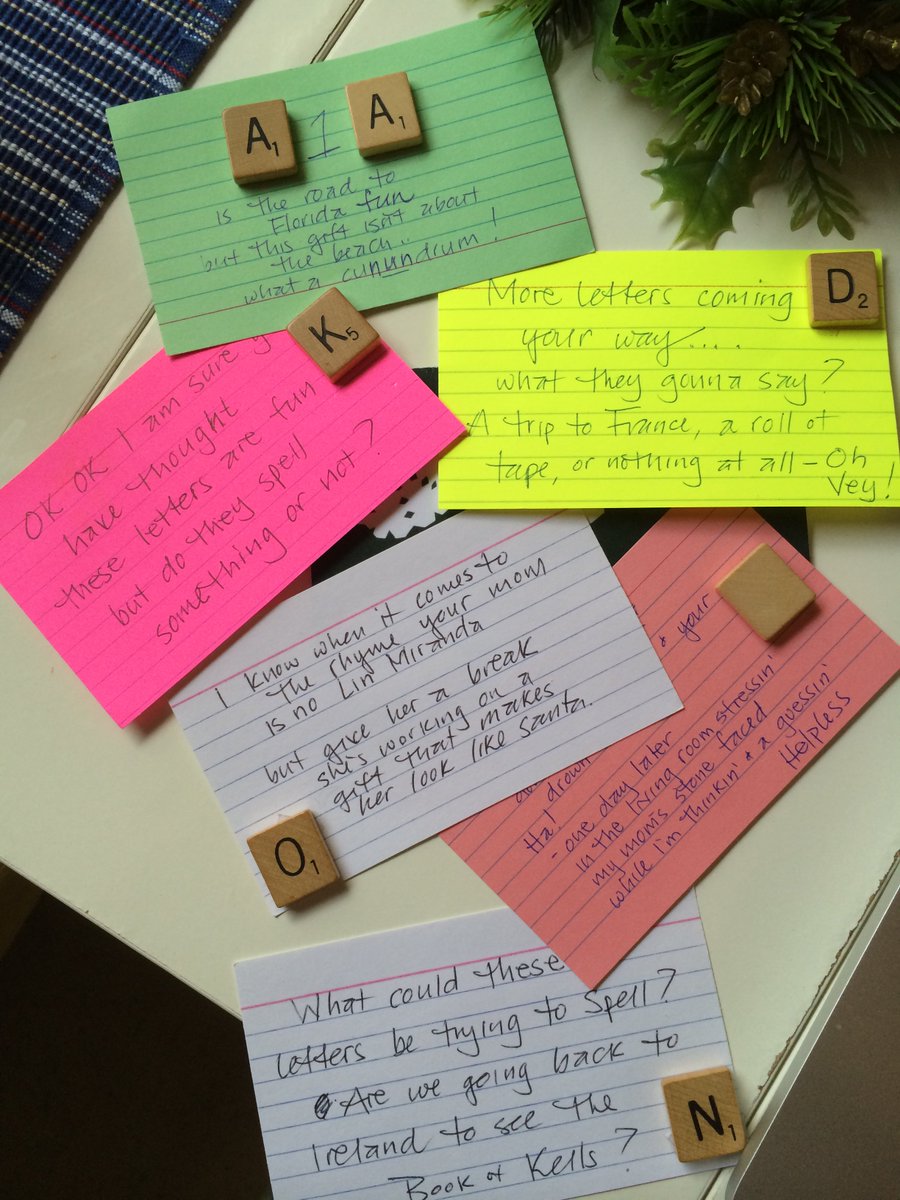 A1 1 A1
is the road to
Florida fun
but this gift isn't about
the beach..
what a cunundrum!
D2
More letters coming
your way....
what they gonna say?
A trip to France, a roll of
tape, or nothing at all - Oh
Vey!
K5
OK OK I am sure
have thought
these letters are fun
but do they spell
something or not?
I know when it comes to
the rhyme your mom
is no Lin Miranda
but give her a break
she's working on a
gift that makes
her look like Santa.
O1
& your
Ha! drown
- one day later
in the living room stressin'
my mom's stone faced
while i'm thinkin' & a guessin'
Helpless
What could these
letters be trying to Spell?
Are we going back to
Ireland to see the
Book of Kells?
N1